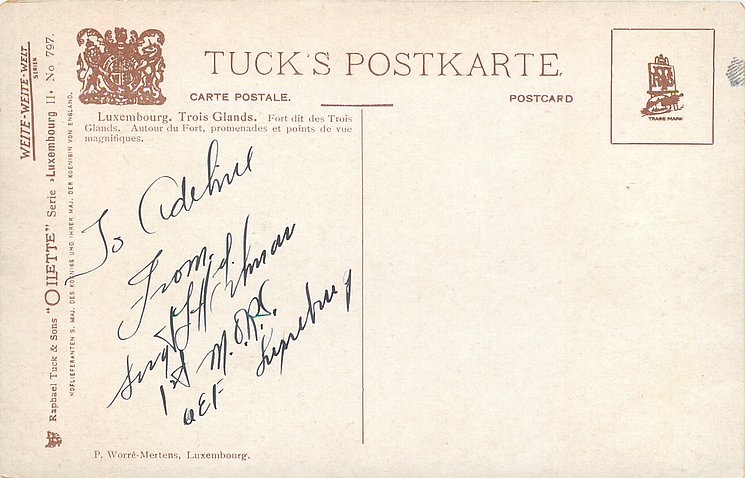 WEITE-WEITE-WELT
SERIEN
Raphael Tuck & Sons "OILETTE" Serie »Luxembourg II« No 797.
HOFLIEFERANTEN S. MAJ. DES KOENIGS UND IHRER MAJ. DER KOENIGIN VON ENGLAND.
TUCK'S POSTKARTE.
CARTE POSTALE.
POSTCARD
Luxembourg. Trois Glands. Fort dit des Trois
Glands. Autour du Fort, promenades et points de vue
magnifiques.
TRADE MARK
To Adeline
From
1st M.O.R.S.
AEF
P. Worré-Mertens, Luxembourg.